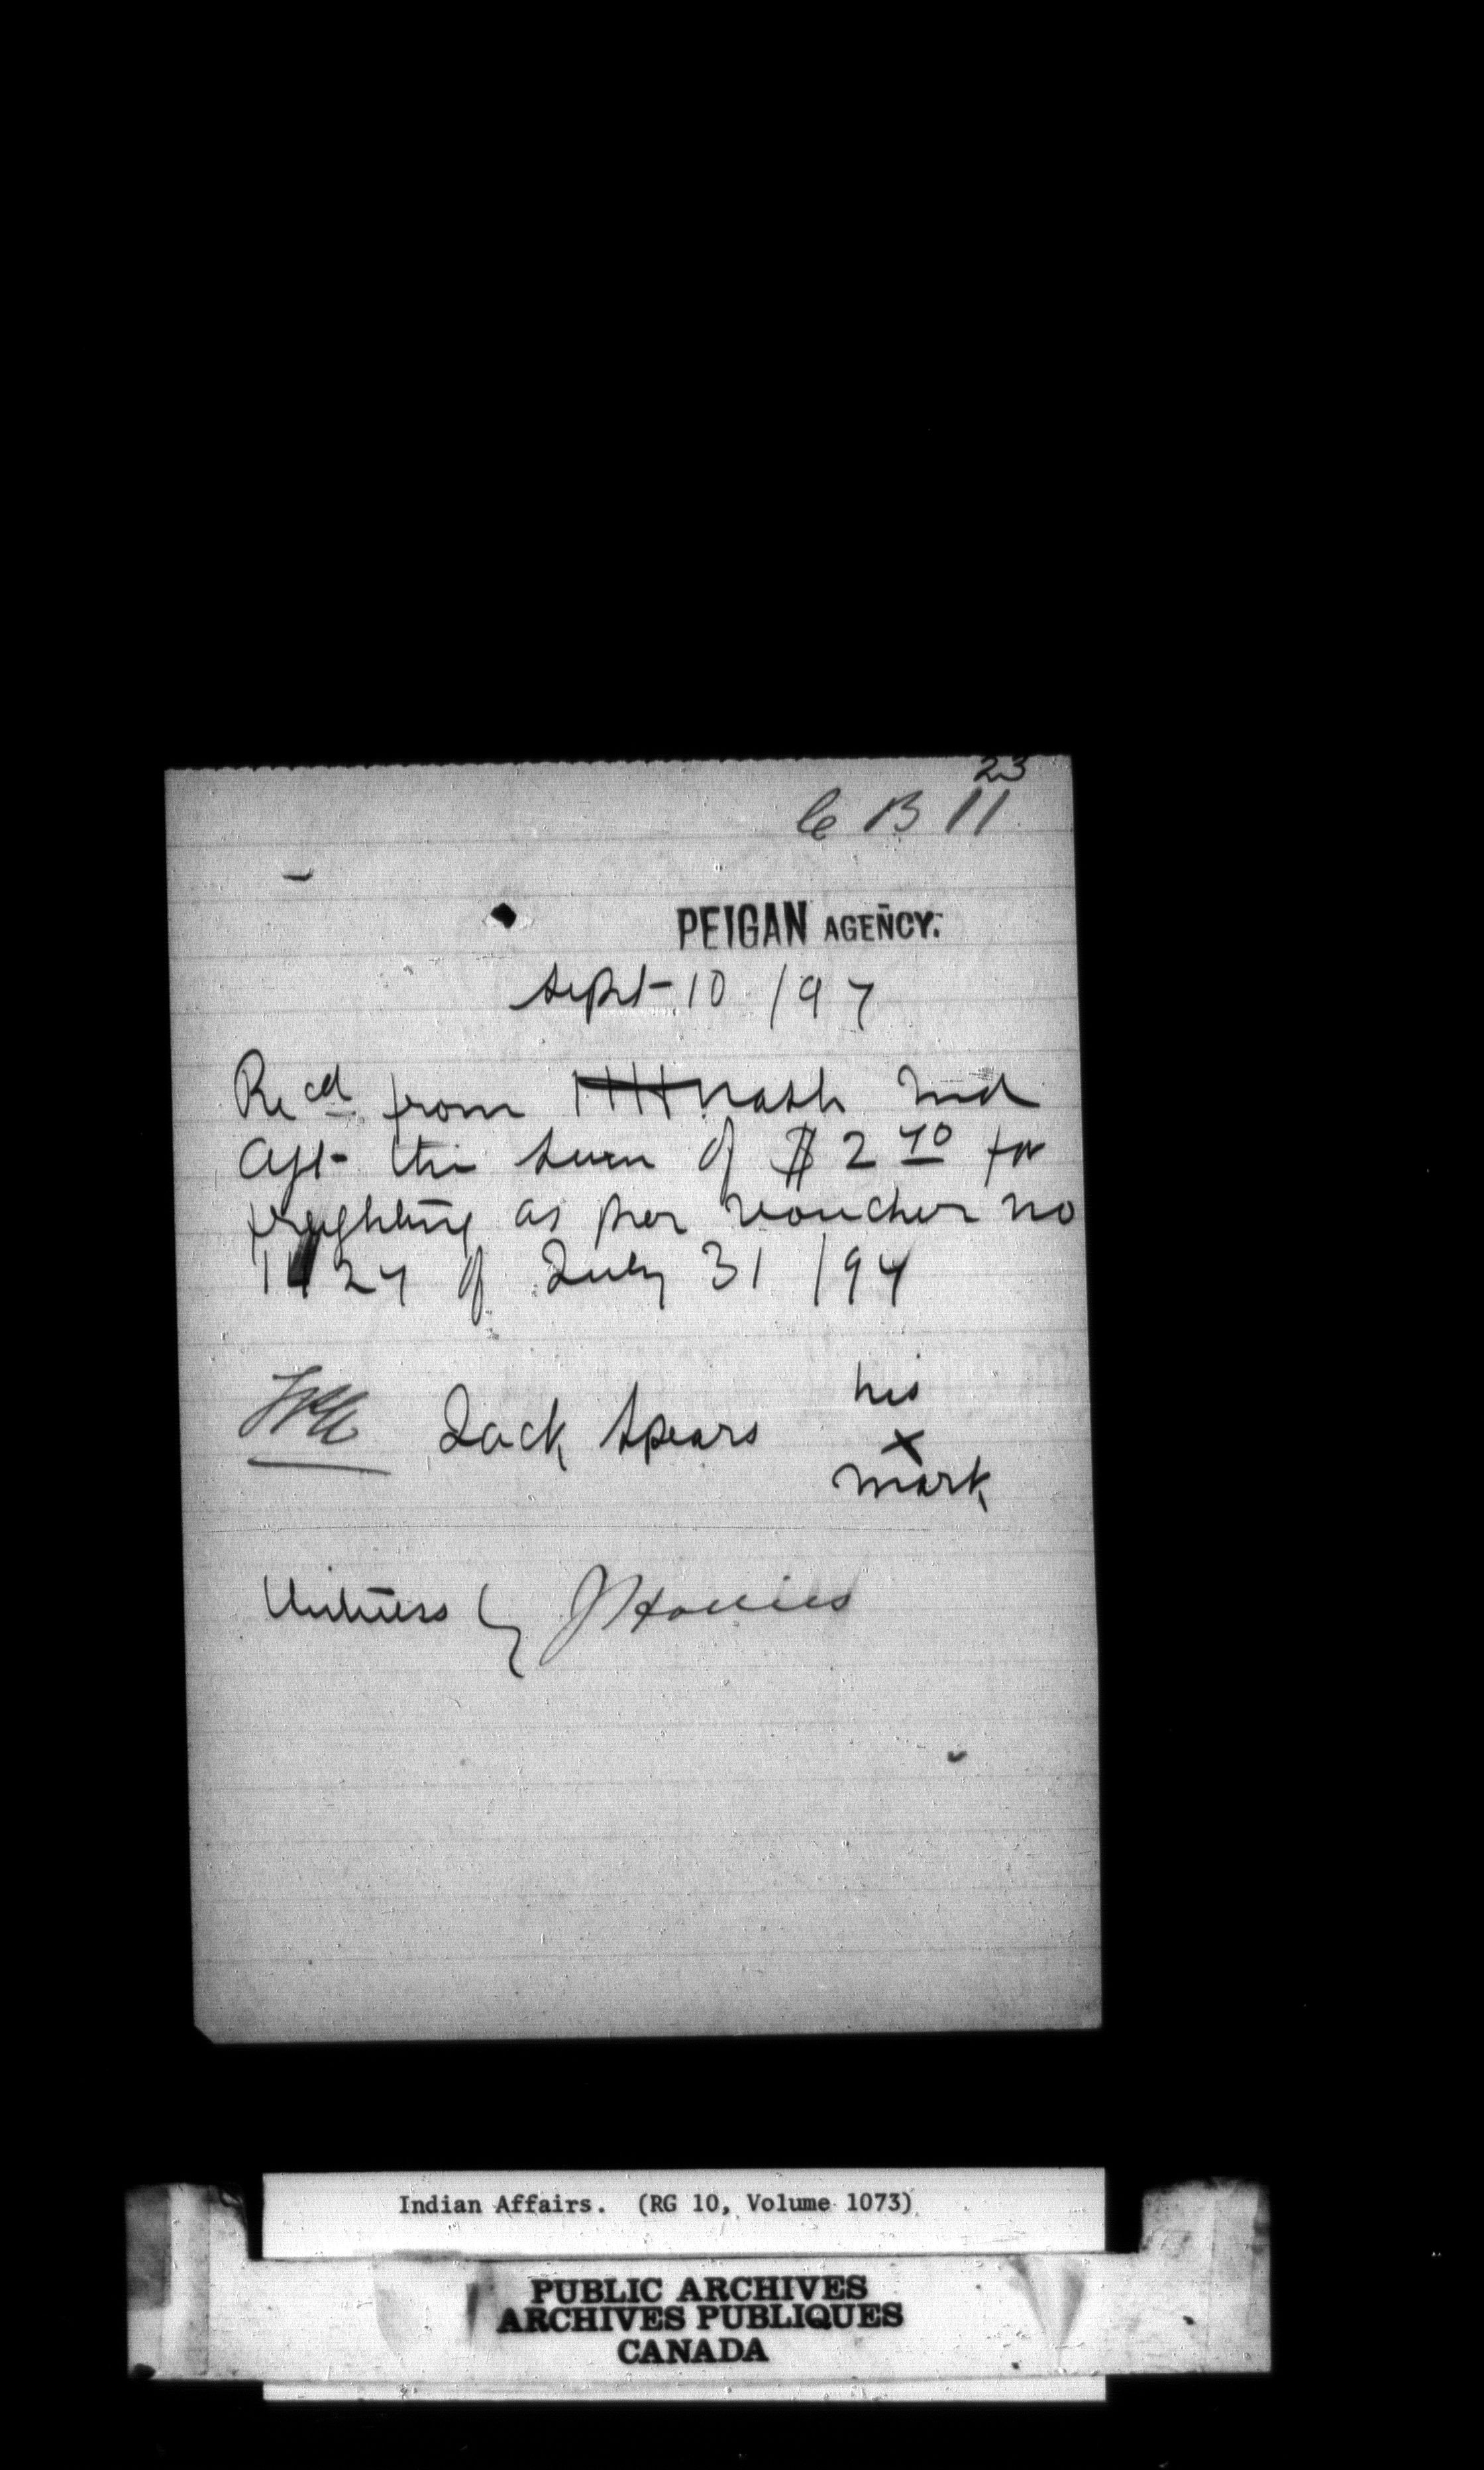 23
C B 11
PEIGAN AGENCY.
Sept 10 /97
Recd from HHNash Ind
Agt the sum of $2 70 for
freighting as per voucher no
27 of July 31 /97
Jack Spears his
X
mark
Witness
Indian Affairs. (RG 10, Volume 1073)
PUBLIC ARCHIVES
ARCHIVES PUBLIQUES
CANADA